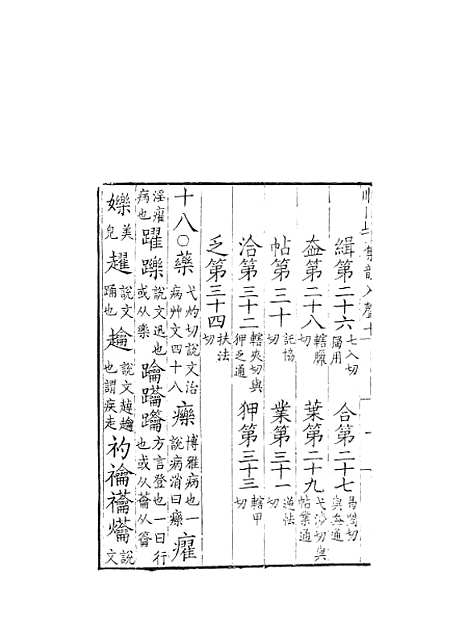 緝第二十六七入切獨用 合第二十七曷閤切與盍通
盍第二十八轄臘切 葉第二十九弋涉切與帖業通
帖第三十託協切 業第三十一逆怯切
洽第三十二轄夾切與狎乏通 狎第三十三轄甲切
乏第三十四扶法切
十八○藥弋灼切說文治病艸文四十八 𤻲博雅病也一說病消曰𤻲 㿑
淫㿑病也 躍躒說文迅也或从樂 𨂠𨇗𨇮方言登也一曰行也或从龠从籥
嬫美皃 趯說文踊也 𧾩說文趠𧾩也謂疾走 礿禴說文